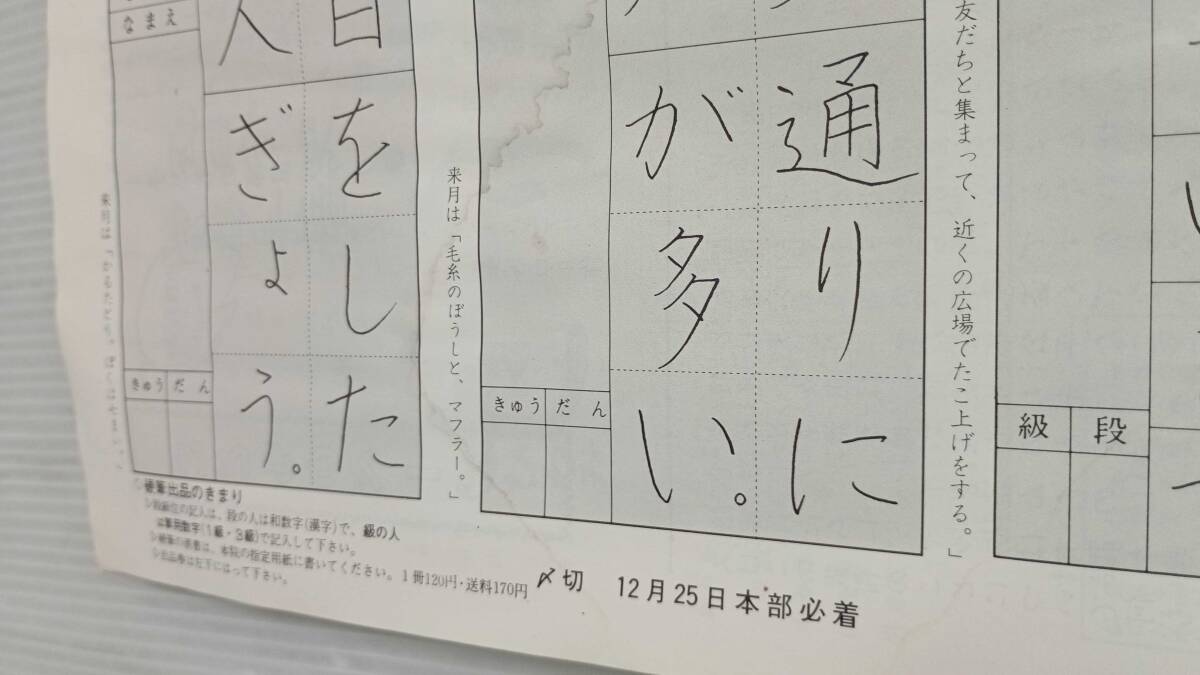 友だちと集まって、近くの広場でたこ上げをする。」
級
段
通りに
が多い。
きゅう
だん
来月は「毛糸のぼうしと、マフラー。」
日をした
人ぎょう。
なまえ
きゅう
だん
硬筆出品のきまり
の記入は、段の人は和数字(漢字)で、級の人
は算用数字(1級・3級)で記入して下さい。
は、本院の指定用紙に書いてください。1冊120円・送料170円
は左下にはって下さい。
〆切 12月25日本部必着